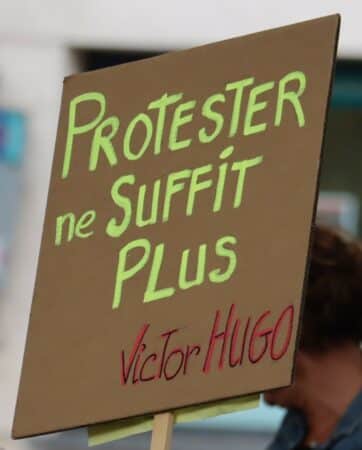 PROTESTER
ne SUFFIT
PLUS
Victor HUGO